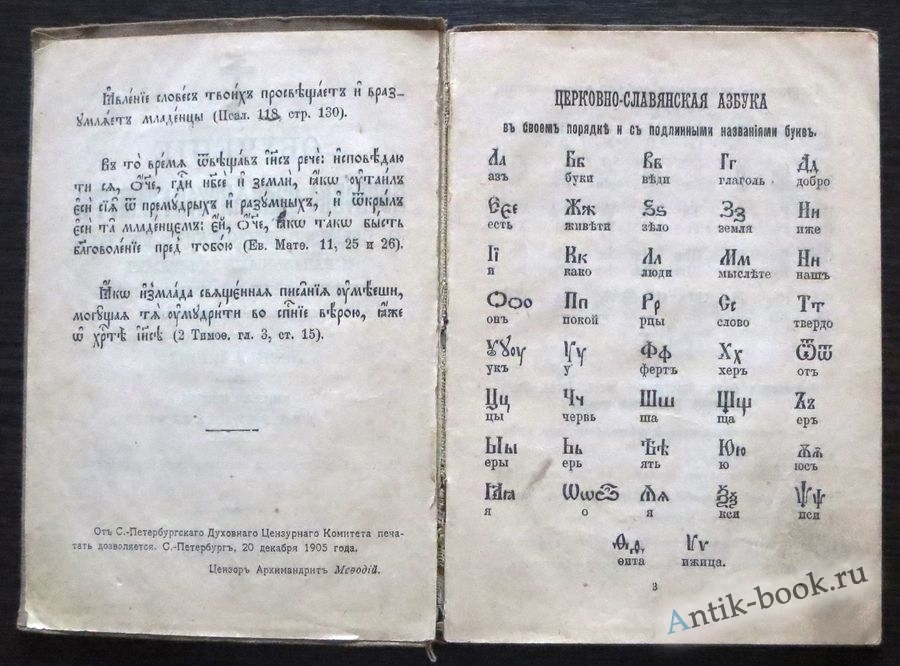 Ꙗ҆вле́нїе слове́съ твои́хъ просвѣща́етъ и҆ враз-
ꙋмлѧ́етъ младе́нцы (Псал. 118, стр. 130).
Въ то̀ вре́мѧ ѿвѣща́въ і҆и҃съ речѐ: и҆сповѣ́даю
ти сѧ, ѻ҆́ч҃е, гдⷭ҇и нб҃сѐ и҆ землѝ, ꙗ҆́кѡ ᲂу҆таи́лъ
є҆сѝ сїѧ̑ ѿ прему́дрыхъ и҆ разꙋ́мныхъ, и҆ ѿкры́лъ
є҆сѝ та̑ младе́нцемъ: є҆́й, ѻ҆́ч҃е, ꙗ҆́кѡ та́кѡ бы́сть
благоволе́нїе пред̾ тобо́ю (Ев. Матѳ. 11, 25 и 26).
Ꙗ҆́кѡ и҆змла́да свѧще́ннаѧ писа̑нїѧ ᲂу҆мѣ́еши,
могꙋ́щаѧ тѧ̀ ᲂу҆мꙋдри́ти во сп҃се́нїе вѣ́рою, ꙗ҆́же
ѡ҆ хрⷭ҇тѣ̀ і҆и҃сѣ (2 Тимоѳ. гл. 3, ст. 15).
Отъ С.-Петербургскаго Духовнаго Цензурнаго Комитета печа-
тать дозволяется. С.-Петербургъ, 20 декабря 1905 года.
Цензоръ Архимандритъ Меѳодій.
ЦЕРКОВНО-СЛАВЯНСКАЯ АЗБУКА
въ своемъ порядкѣ и съ подлинными названіями буквъ.
Аа Бб Вв Гг Дд
азъ буки вѣди глаголь добро
Єєе Жж Ѕѕ Зз Ии
есть живѣти зѣло земля иже
Її Кк Лл Мм Нн
и како люди мыслѣте нашъ
Ѻѻо Пп Рр Сс Тт
онъ покой рцы слово твердо
Ѹѹ Ꙋꙋ Фф Хх Ѿѿ
укъ у фертъ херъ отъ
Цц Чч Шш Щщ Ъъ
цы червь ша ща еръ
Ыы Ьь Ѣѣ Юю Ѫѫ
еры ерь ять ю юсъ
Ꙗꙗ Ѡѡѽ Ѧѧ Ѯѯ Ѱѱ
я о я кси пси
Ѳѳ Ѵѵ
ѳита ижица.
3
Antik-book.ru